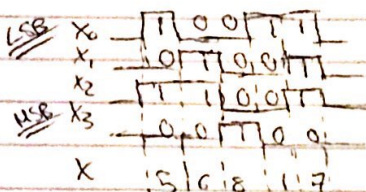 LSB X₀ 1 0 0 1 1
X₁ 0 1 1 0 0 1
X₂ 1 1 0 0 1
MSB X₃ 0 0 1 0 0
X 5 6 8 1 7